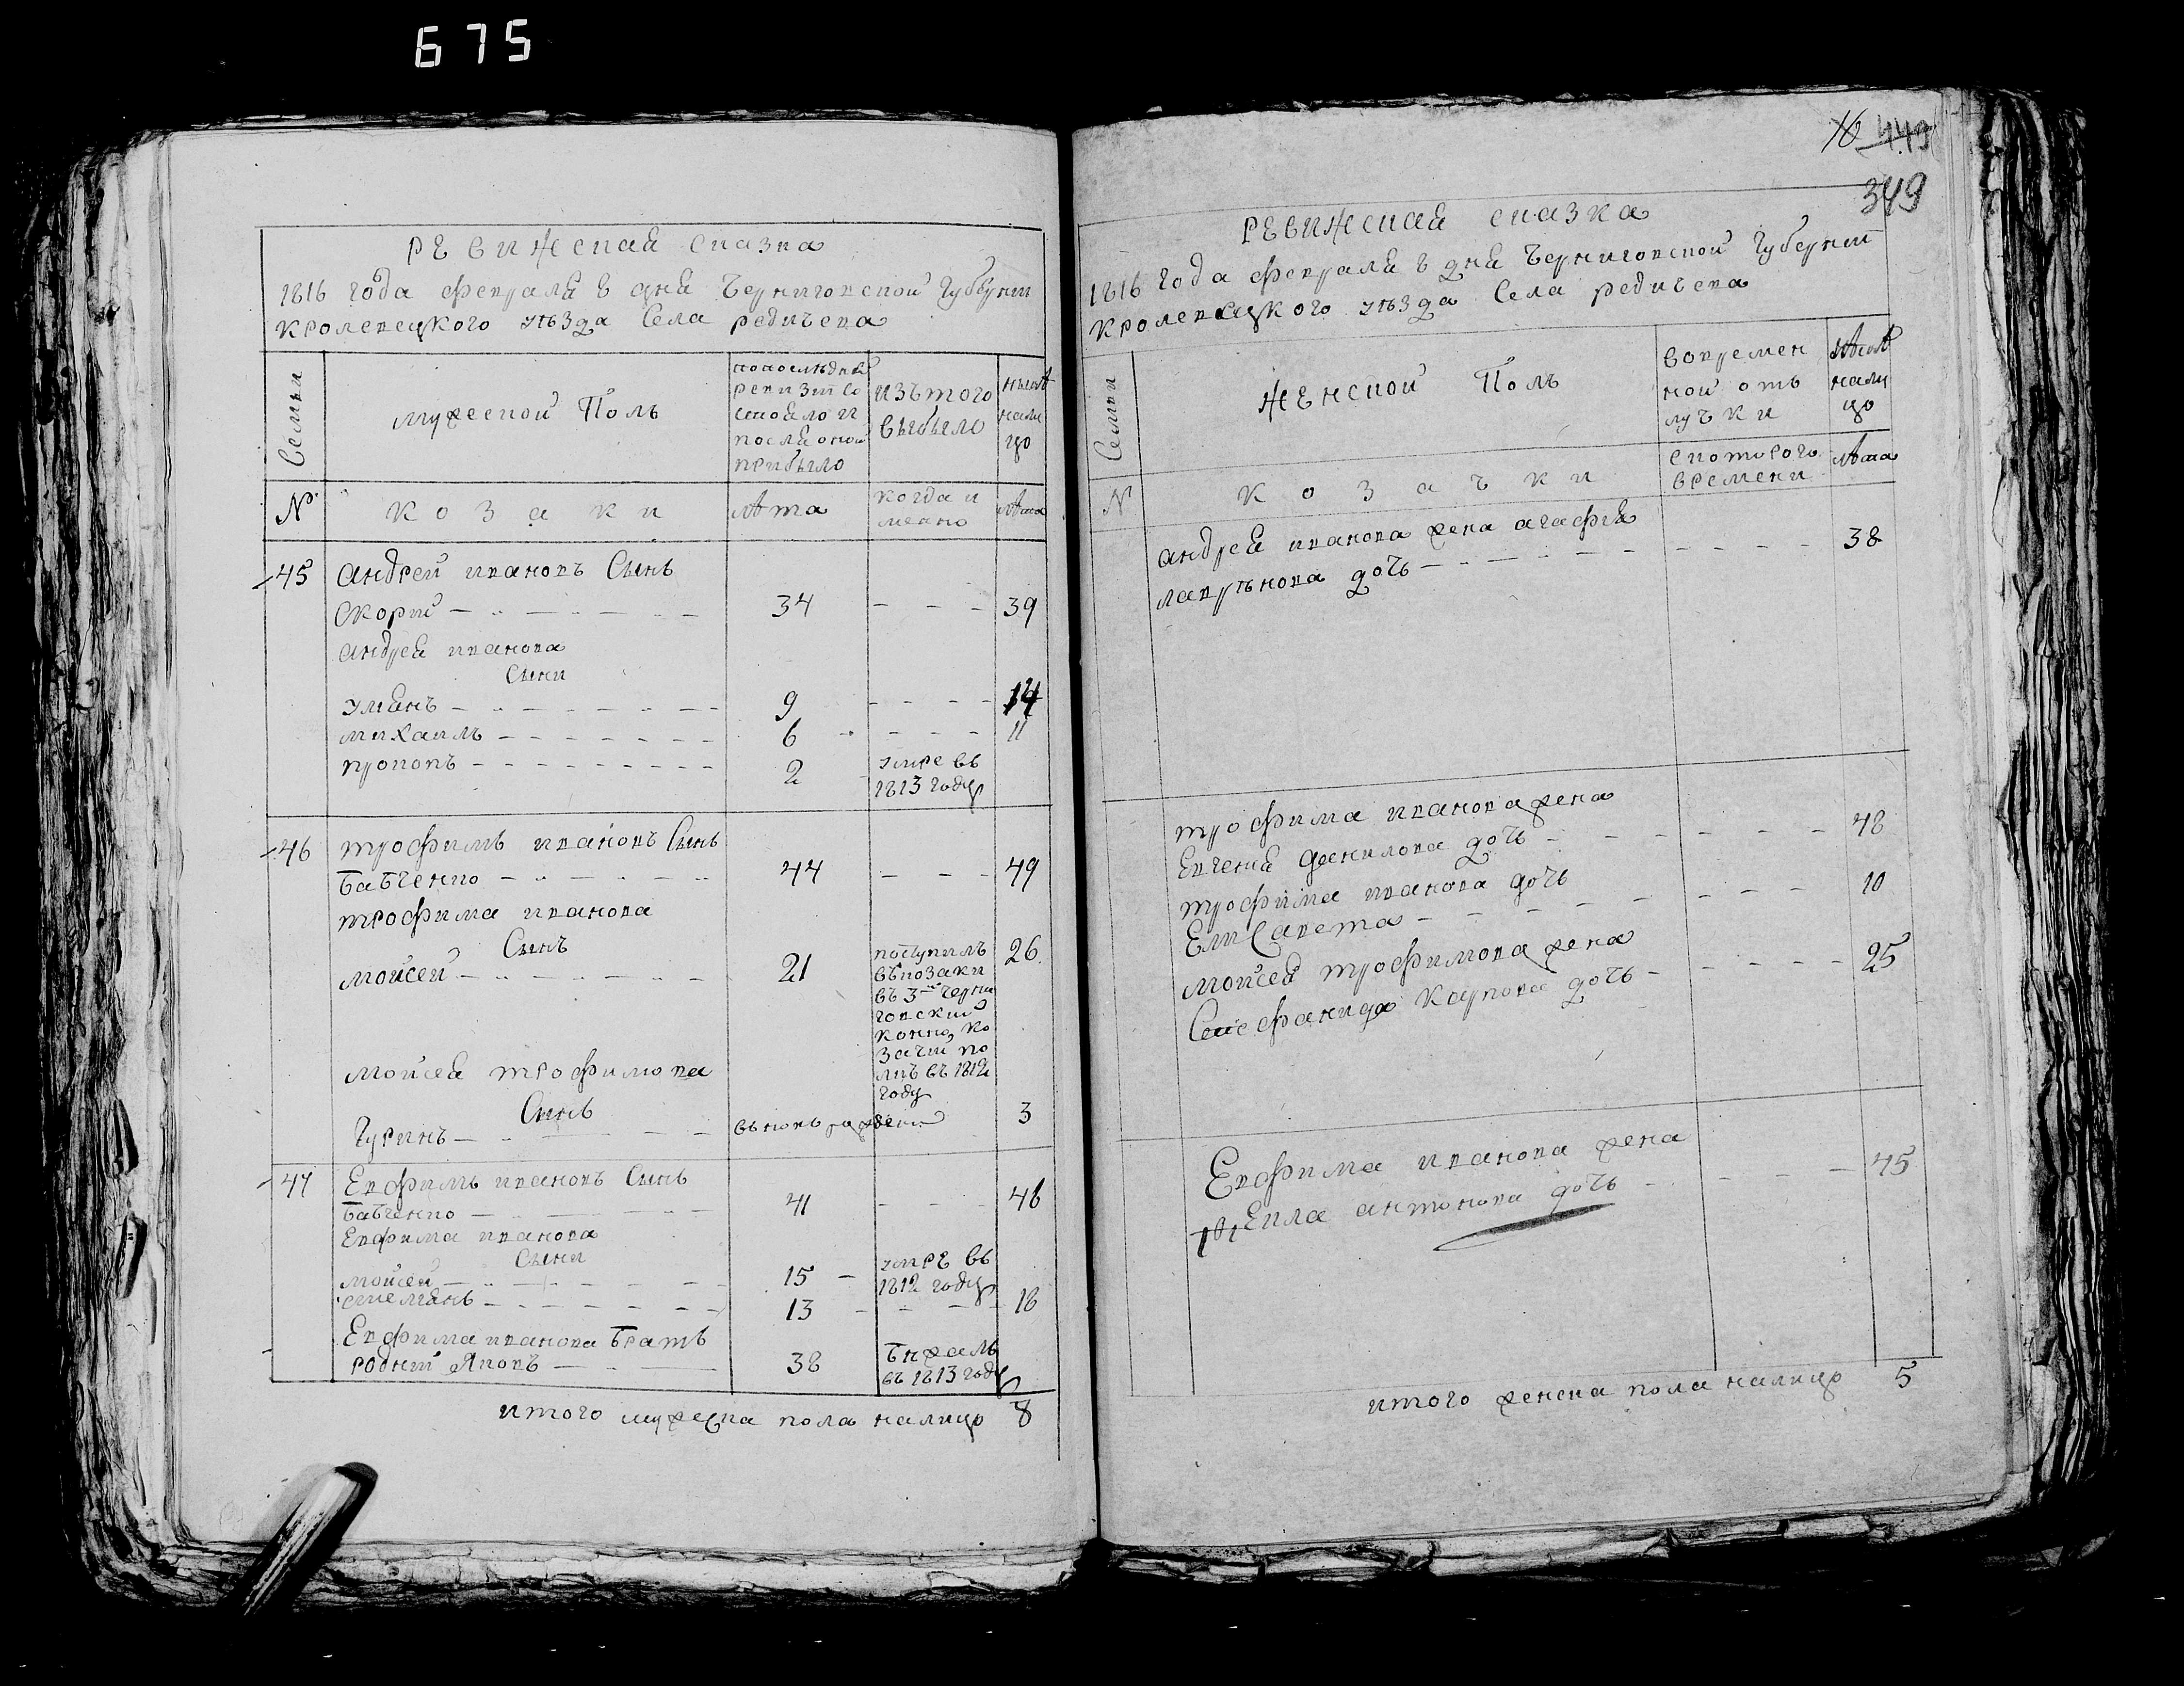 675
ревижская сказка
1816 года февраля 8 дня Черниговской губернии
кролевецкого уѣзда Села редичева
Семьи
мужеской Полъ
попоследней
ревизіи со
стояло и
после оной
прибыло
изътого
выбыло
нынѣ
нали
цо
№
козаки
лѣта
когда и
менно
лѣта
45
андрей ивановъ Сынъ
Скорий
34
39
андрея иванова
Сыни
9
14
михаилъ
6
11
прокопъ
2
умре въ
1813 году
46
трофимъ ивановъ Сынъ
бабченко
44
49
трофима иванова
Сынъ
мойсей
21
поступилъ
въ козаки
въ 3й черни
говский
конно, ко
зачій по
лкъ въ 1812
году
26
мойсея трофимова
Сынъ
Гуринъ
вновь рожден
3
47
Евфимъ ивановъ Сынъ
бабченко
41
46
Евфима иванова
Сыни
мойсей
15
умре въ
1812 году
емелянъ
13
18
Евфима иванова братъ
родний Яковъ
38
бежалъ
въ 1813 году
итого мужеска пола налицо 8
16 443
349
ревижская сказка
1816 года февраля 8 дня Черниговской губерніи
кролевецкого уѣзда Села редичева
Семьи
женской Полъ
вовремен
ной отъ
лучки
нали
цо
№
козачки
скоторого
времени
лѣта
андрея иванова жена агафія
38
лаврѣнова дочь
трофима иванова жена
Евгения данилова дочь
48
трофима иванова дочь
Елисавета
10
мойсея трофимова жена
Стефанида Карпова дочь
25
Евфима иванова жена
Екла антонова дочь
45
итого женска пола налицо 5